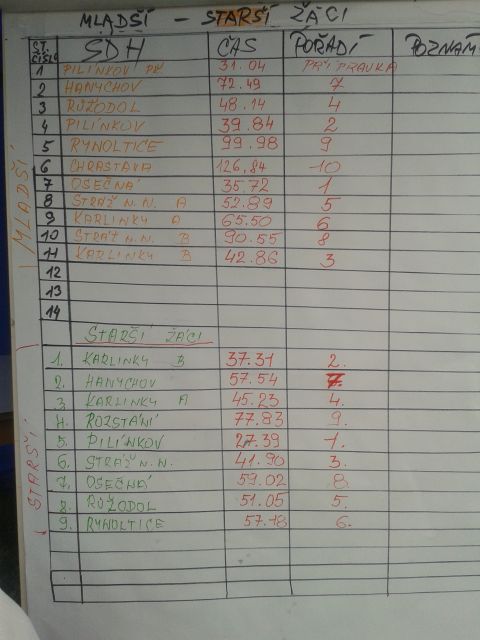 MLADŠÍ - STARŠÍ ŽÁCI
ST. ČÍSLO SDH ČAS POŘADÍ POZNÁM
1 PILÍNKOV PŘ 31.04 PŘÍPRAVKA
2 HANYCHOV 72.49 7
3 RŮŽODOL 48.14 4
4 PILÍNKOV 39.84 2
5 RYNOLTICE 99.98 9
6 CHRASTAVA 126,84 10
7 OSEČNÁ 35.72 1
8 STRÁŽ N.N. A 52.89 5
9 KARLINKY A 65.50 6
10 STRÁŽ N.N. B 90.55 8
11 KARLINKY B 42.86 3
12
13
14
MLADŠÍ
STARŠÍ ŽÁCI
1. KARLINKY B 37.31 2.
2. HANYCHOV 57.54 7.
3. KARLINKY A 45.23 4.
4. ROZSTÁNÍ 77.83 9.
5. PILÍNKOV 27.39 1.
6. STRÁŽ N.N. 41.90 3.
7. OSEČNÁ 59.02 8.
8. RŮŽODOL 51.05 5.
9. RYNOLTICE 57.18 6.
STARŠÍ